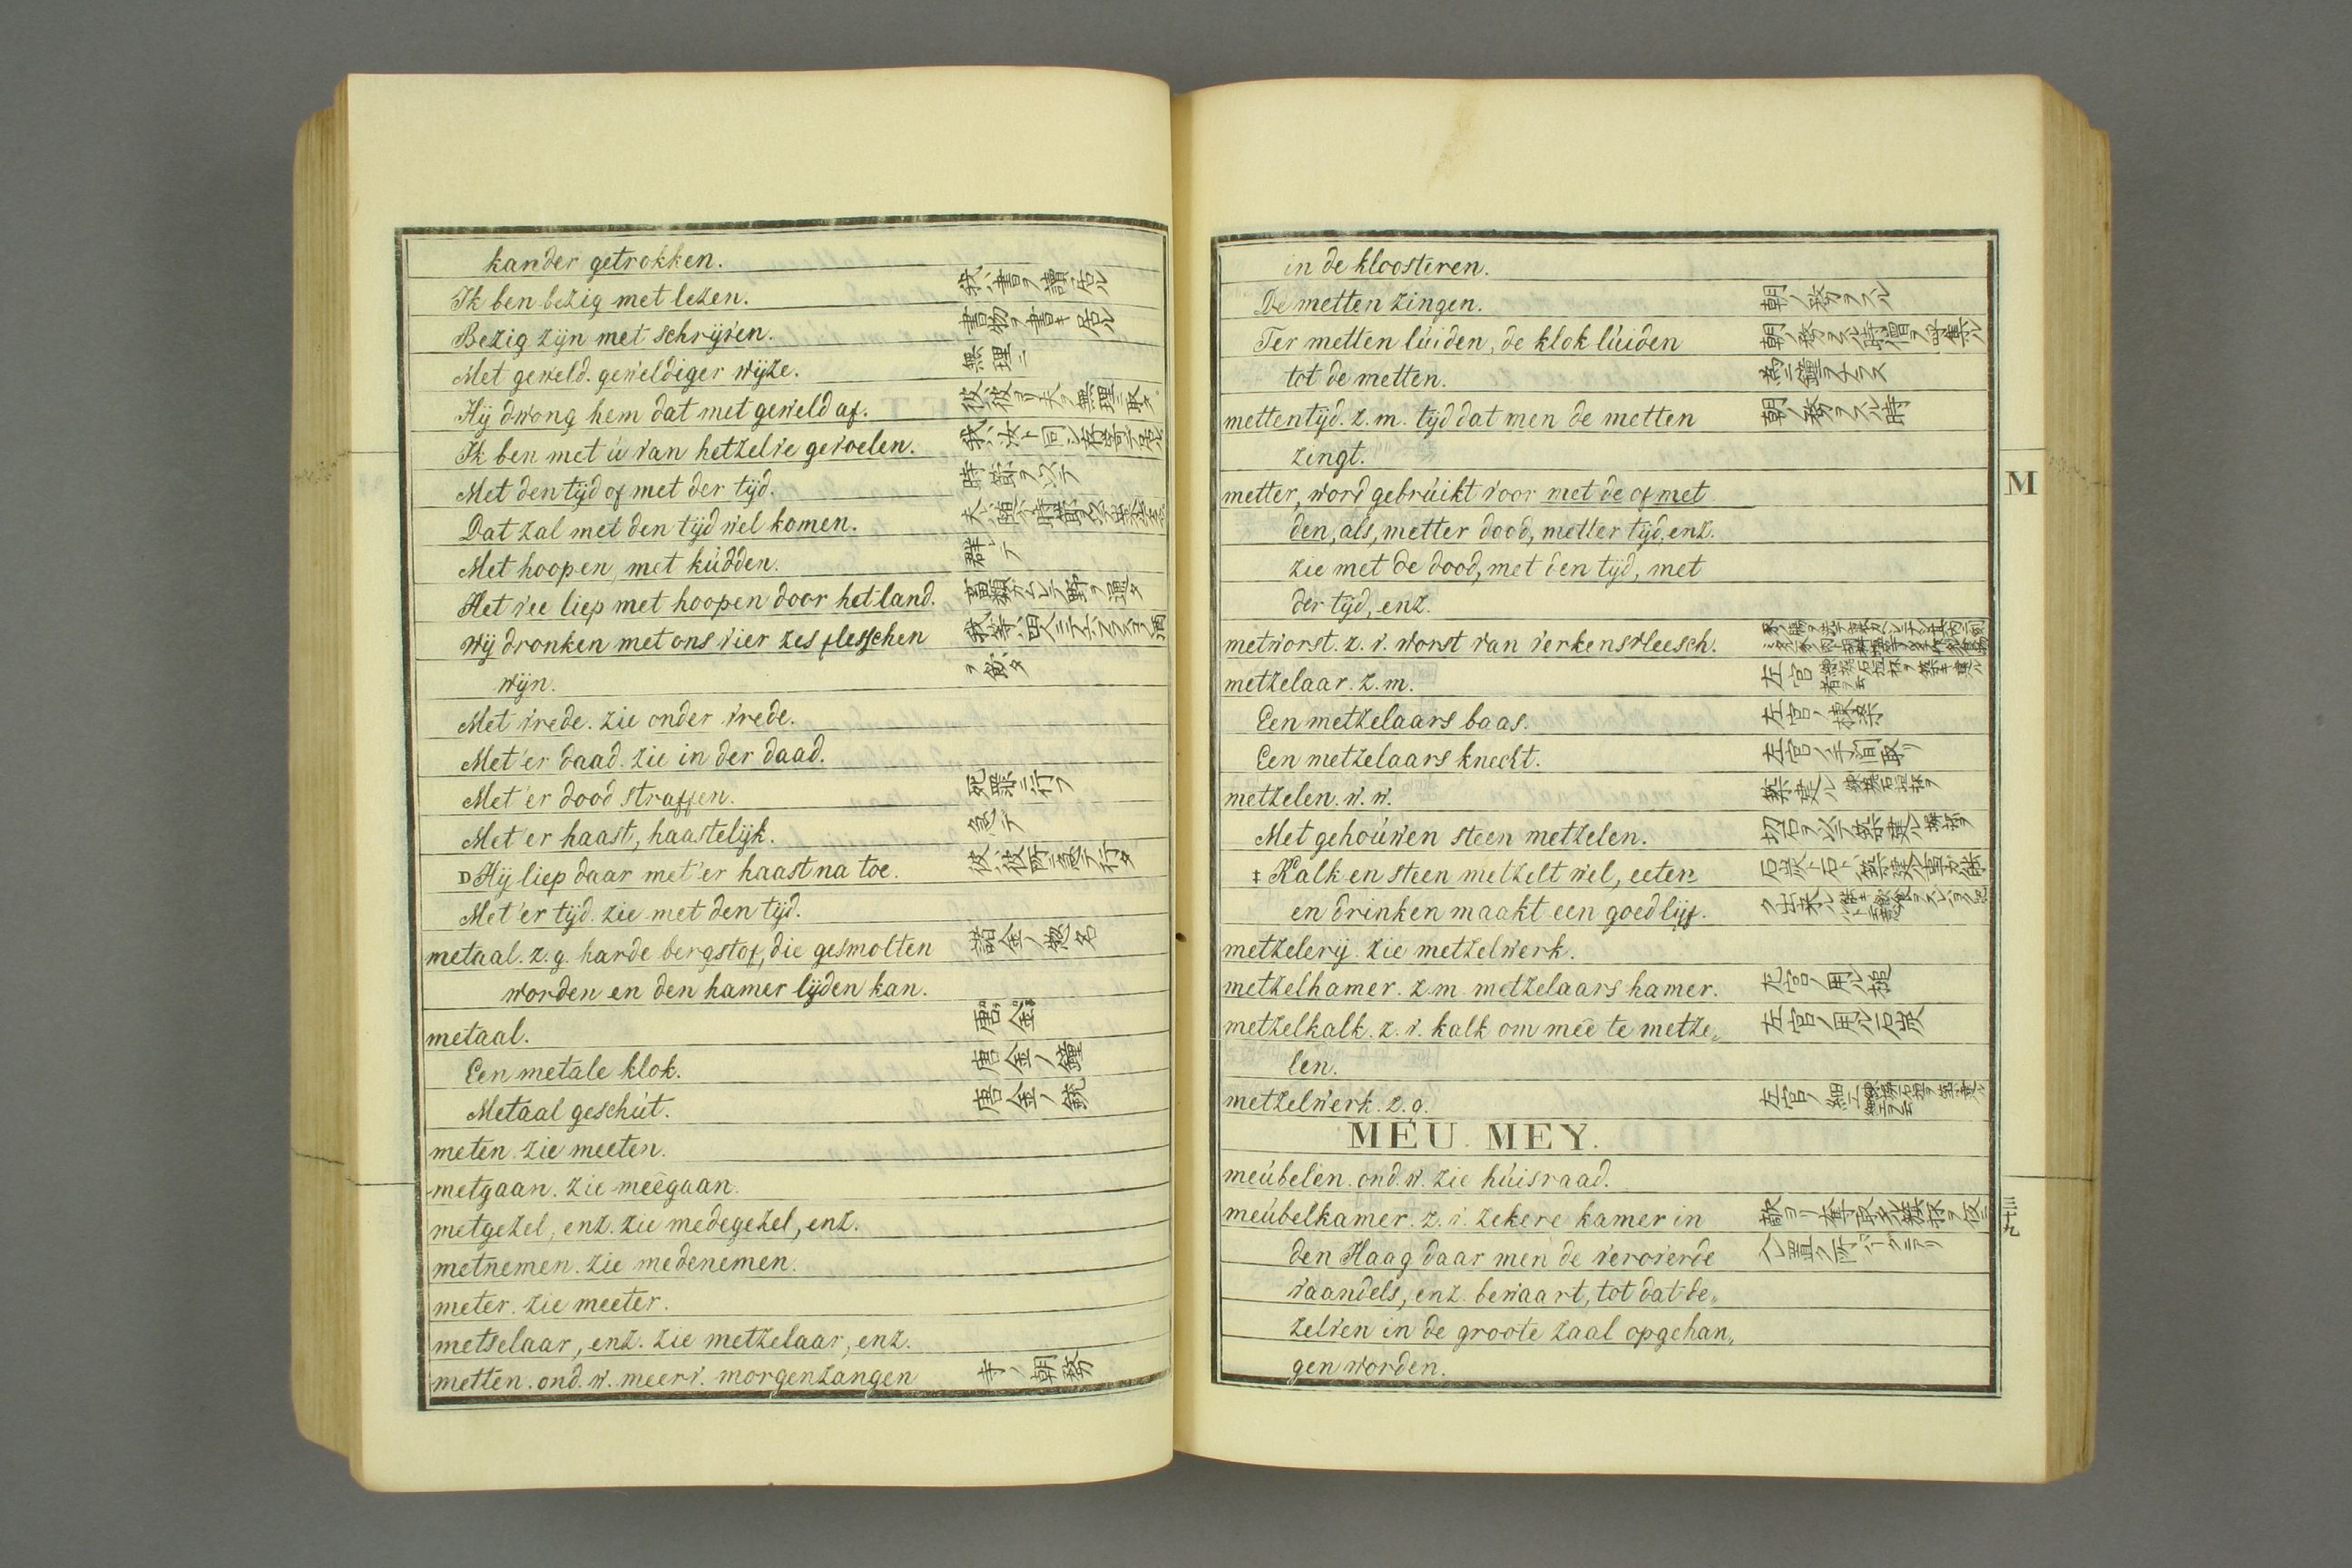 kander getrokken.
Ik ben bezig met lezen. 我ハ書ヲ讀居ル
Bezig zijn met schrijven. 書物ヲ書キ居ル
Met geweld. geweldiger wijze. 無理ニ
Hij dwong hem dat met geweld af. 彼ハ彼ヨリ夫ヲ無理ニ取タ
Ik ben met ú van hetzelve gevoelen. 我ハ汝ト同シ
Met den tijd of met der tijd. 時節ヲ以テ
Dat zal met den tijd wel komen.
Met hoopen, met kúdden. 群レテ
Het vee liep met hoopen door het land. 畜類カムレテ野ヲ通タ
Wij dronken met ons vier zes flesschen 我等四人ニテ
wijn. ヲ飲タ
Met vrede. zie onder vrede.
Met'er daad. zie in der daad.
Met'er dood straffen. 死罪ニ行フ
Met'er haast, haastelijk. 急テ
D Hij liep daar met'er haast na toe. 彼ハ彼所ニ急テ行タ
Met'er tijd. zie met den tijd.
metaal. z. g. harde bergstof, die gesmolten 諸金ノ惣名
worden en den hamer lijden kan.
metaal. 唐金
Een metale klok. 唐金ノ鐘
Metaal geschút. 唐金ノ銃
meten. zie meeten.
metgaan. zie meêgaan.
metgezel, enz. zie medegezel, enz.
metnemen. zie medenemen.
meter. zie meeter.
metselaar, enz. zie metzelaar, enz.
metten. ond. w. meerv. morgenzangen 寺ノ朝務
in de kloosteren.
De metten zingen. 朝ノ務ヲスル
Ter metten lúiden, de klok lúiden 朝ノ務ヲスル時僧ヲ呼集ル
tot de metten. 為ニ鐘ヲナラス
mettentijd. z. m. tijd dat men de metten 朝ノ務ヲスル時
zingt.
metter, word gebrúikt voor met de of met
den, als, metter dood, metter tijd, enz.
zie met de dood, met den tijd, met
der tijd, enz.
metworst. z. v. worst van verkensvleesch.
metzelaar. z. m.左官
Een metzelaars baas. 左官ノ棟梁
Een metzelaars knecht. 左官ノ手間取リ
metzelen. w. w. 築建ル
Met gehoúwen steen metzelen. 切石ヲ以テ築建ル
‡ Kalk en steen metzelt wel, eeten
en drinken maakt een goed lijf.
metzelerij. zie metzelwerk.
metzelhamer. z. m. metzelaars hamer. 左官ノ用ル槌
metzelkalk. z. v. kalk om meê te metze„ 左官ノ用ル石灰
len.
metzelwerk. z. g. 左官ノ細工
MEU. MEY.
meúbelen. ond. w. zie húisraad.
meúbelkamer. z. v. zekere kamer in 敵ヨリ奪取タル旗抔ヲ仮ニ
den Haag daar men de veroverde
vaandels, enz. bewaart, tot dat de„
zelven in de groote zaal opgehan„
gen worden.
M
三十九